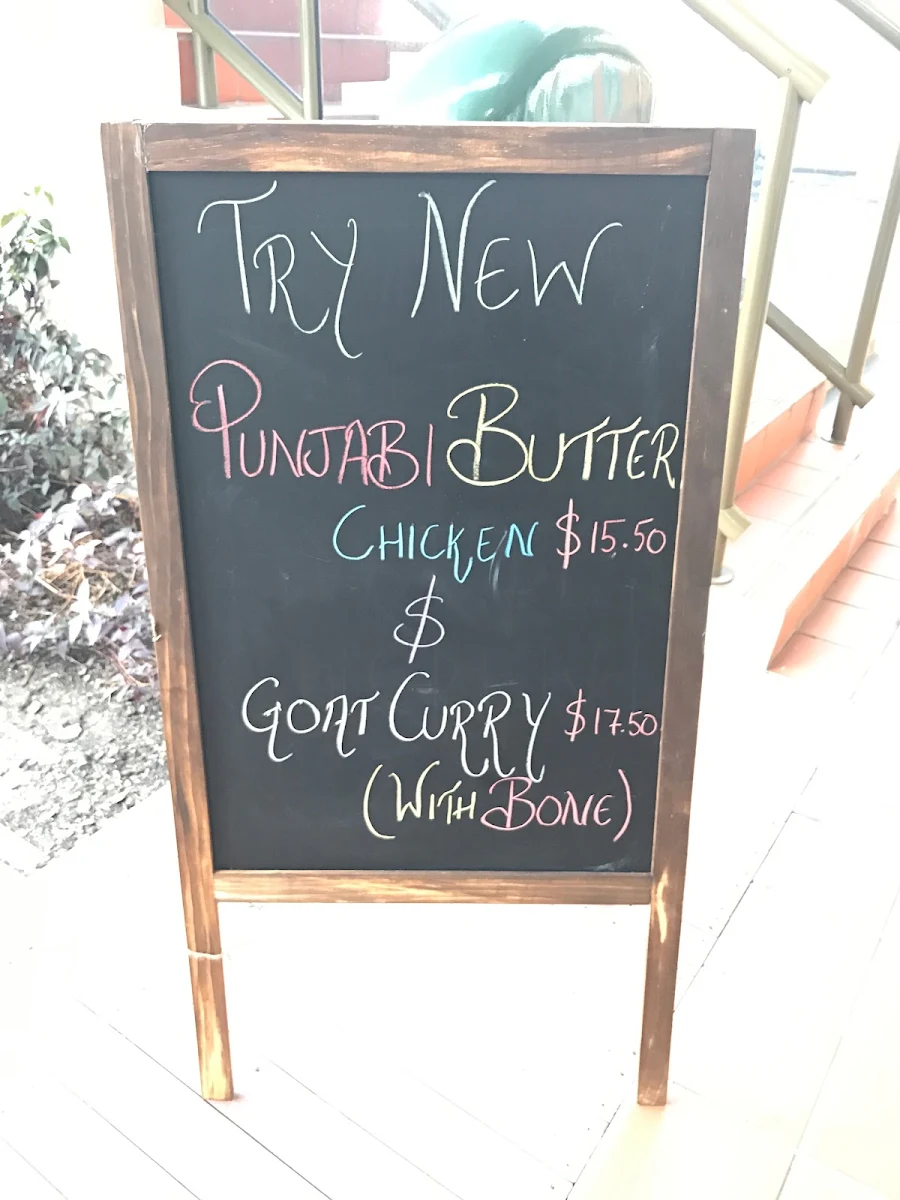 TRY NEW
PUNJABI BUTTER
CHICKEN $15.50
$
GOAT CURRY $17.50
(WITH BONE)